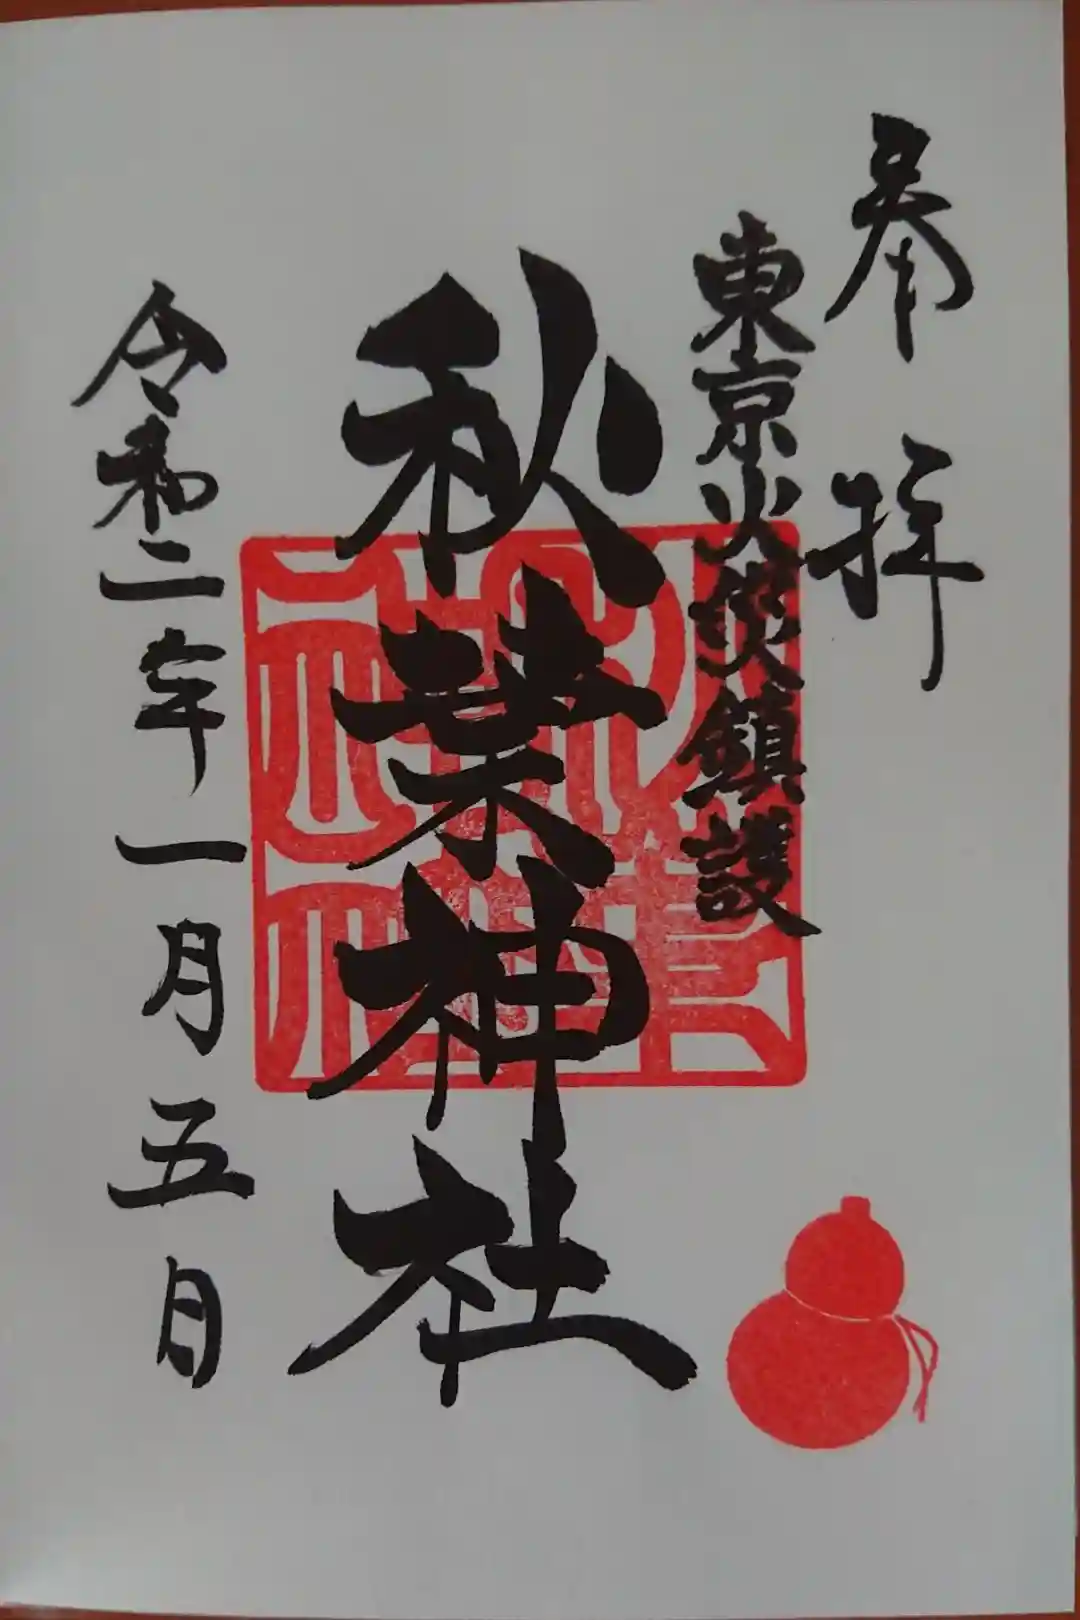 奉拝
東京火災鎮護
秋葉神社
令和二年一月五日